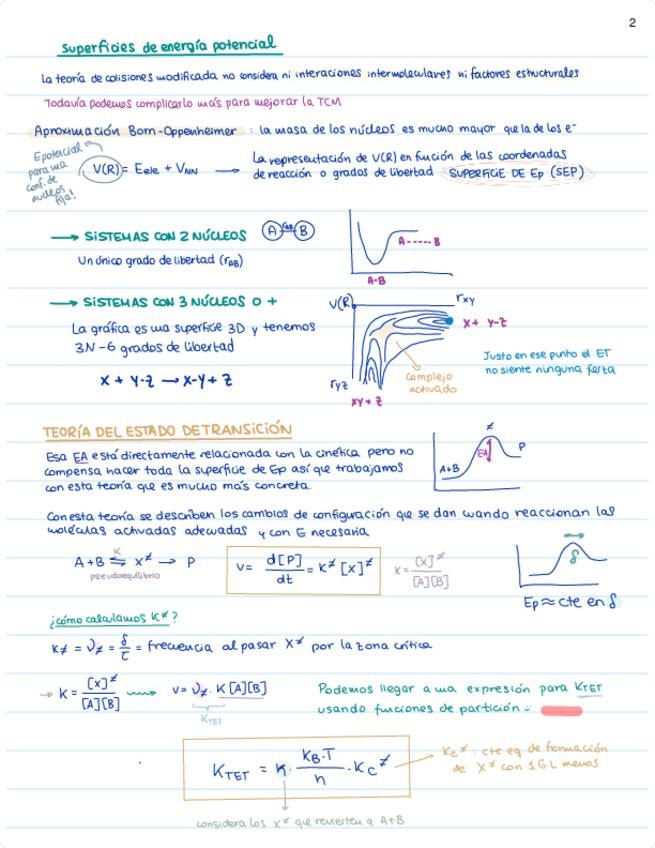 2
Superficies de energía potencial
La teoría de colisiones modificada no considera ni interaciones intermoleculares ni factores estructurales
Todavía podemos complicarlo más para mejorar la TCM
Aproximación Born-Oppenheimer : la masa de los núcleos es mucho mayor que la de los e⁻
Epotencial para una conf. de núcleos fija!
V(R) = Eele + VNN →
La representación de V(R) en fución de las coordenadas
de reacción o grados de libertad SUPERFICIE DE Ep (SEP)
→ SISTEMAS CON 2 NÚCLEOS
A rAB B
Un único grado de libertad (rAB)
A-----B
A-B
→ SISTEMAS CON 3 NÚCLEOS O +
La gráfica es una superficie 3D y tenemos
3N-6 grados de libertad
X + Y-Z → X-Y + Z
V(R)
rxy
X + Y-Z
ryz
complejo
activado
XY + Z
Justo en ese punto el ET
no siente ninguna
TEORÍA DEL ESTADO DE TRANSICIÓN
Esa EA está directamente relacionada con la cinética pero no
compensa hacer toda la superficie de Ep así que trabajamos
con esta teoría que es mucho más concreta
≠
EA
P
A+B
Con esta teoría se describen los cambios de configuración que se dan wando reaccionan las
moléculas activadas adewadas y con E necesaria
A+B ⇆ X≠ → P
K
pseudoequilibrio
v = d[P]/dt = K≠ [X]≠
K = [X]≠/[A][B]
δ
Ep ≈ cte en δ
¿cómo calculamos K≠?
K≠ = ν≠ = δ/τ = frecuencia al pasar X≠ por la zona crítica
→ K = [X]≠/[A][B] → v = ν≠ · K [A][B]
KTET
Podemos llegar a una expresión para KTET
usando funciones de partición :
KTET = κ · KB·T/h · Kc≠
Kc≠ : cte eq de formación
de X≠ con 1GL menos
considera los X≠ que revierten a A+B